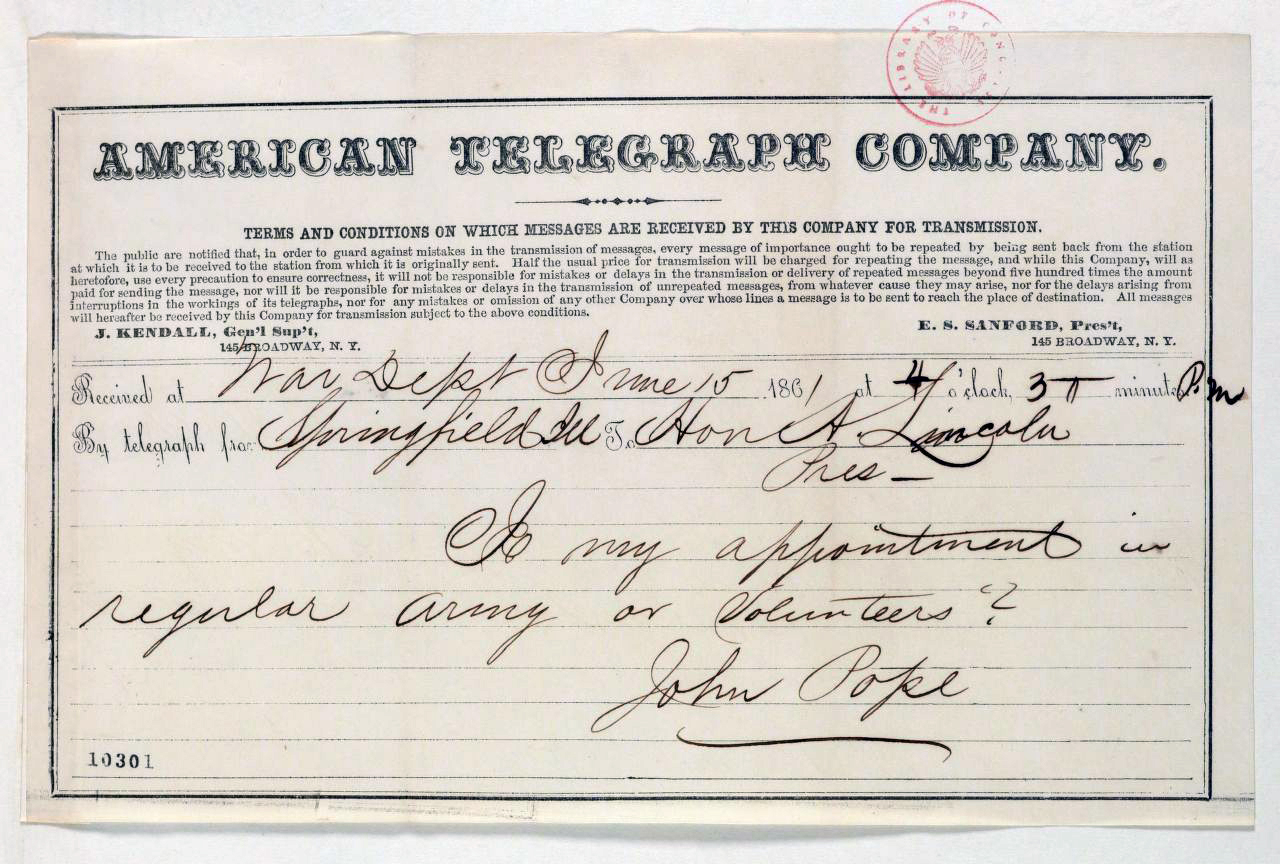 THE LIBRARY OF CONGRESS
AMERICAN TELEGRAPH COMPANY.
TERMS AND CONDITIONS ON WHICH MESSAGES ARE RECEIVED BY THIS COMPANY FOR TRANSMISSION.
The public are notified that, in order to guard against mistakes in the transmission of messages, every message of importance ought to be repeated by being sent back from the station
at which it is to be received to the station from which it is originally sent. Half the usual price for transmission will be charged for repeating the message, and while this Company, will as
heretofore, use every precaution to ensure correctness, it will not be responsible for mistakes or delays in the transmission or delivery of repeated messages beyond five hundred times the amount
paid for sending the message, nor will it be responsible for mistakes or delays in the transmission of unrepeated messages, from whatever cause they may arise, nor for the delays arising from
interruptions in the workings of its telegraphs, nor for any mistakes or omission of any other Company over whose lines a message is to be sent to reach the place of destination. All messages
will hereafter be received by this Company for transmission subject to the above conditions.
J. KENDALL, Gen'l Sup't, E. S. SANFORD, Pres't,
145 BROADWAY, N. Y. 145 BROADWAY, N. Y.
Received at War Dept June 15 1861 at 4 o'clock, 30 minutes P.m
By telegraph from Springfield Ill To Hon A. Lincoln
Pres –
Is my appointment in
regular army or Volunteers"?
John Pope
10301